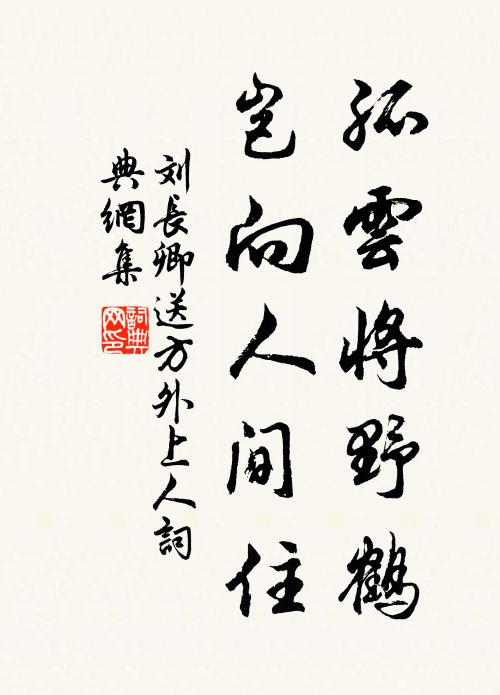 孤雲將野鶴
豈向人間住
刘長卿送方外上人詞
典網集
詞典
网印